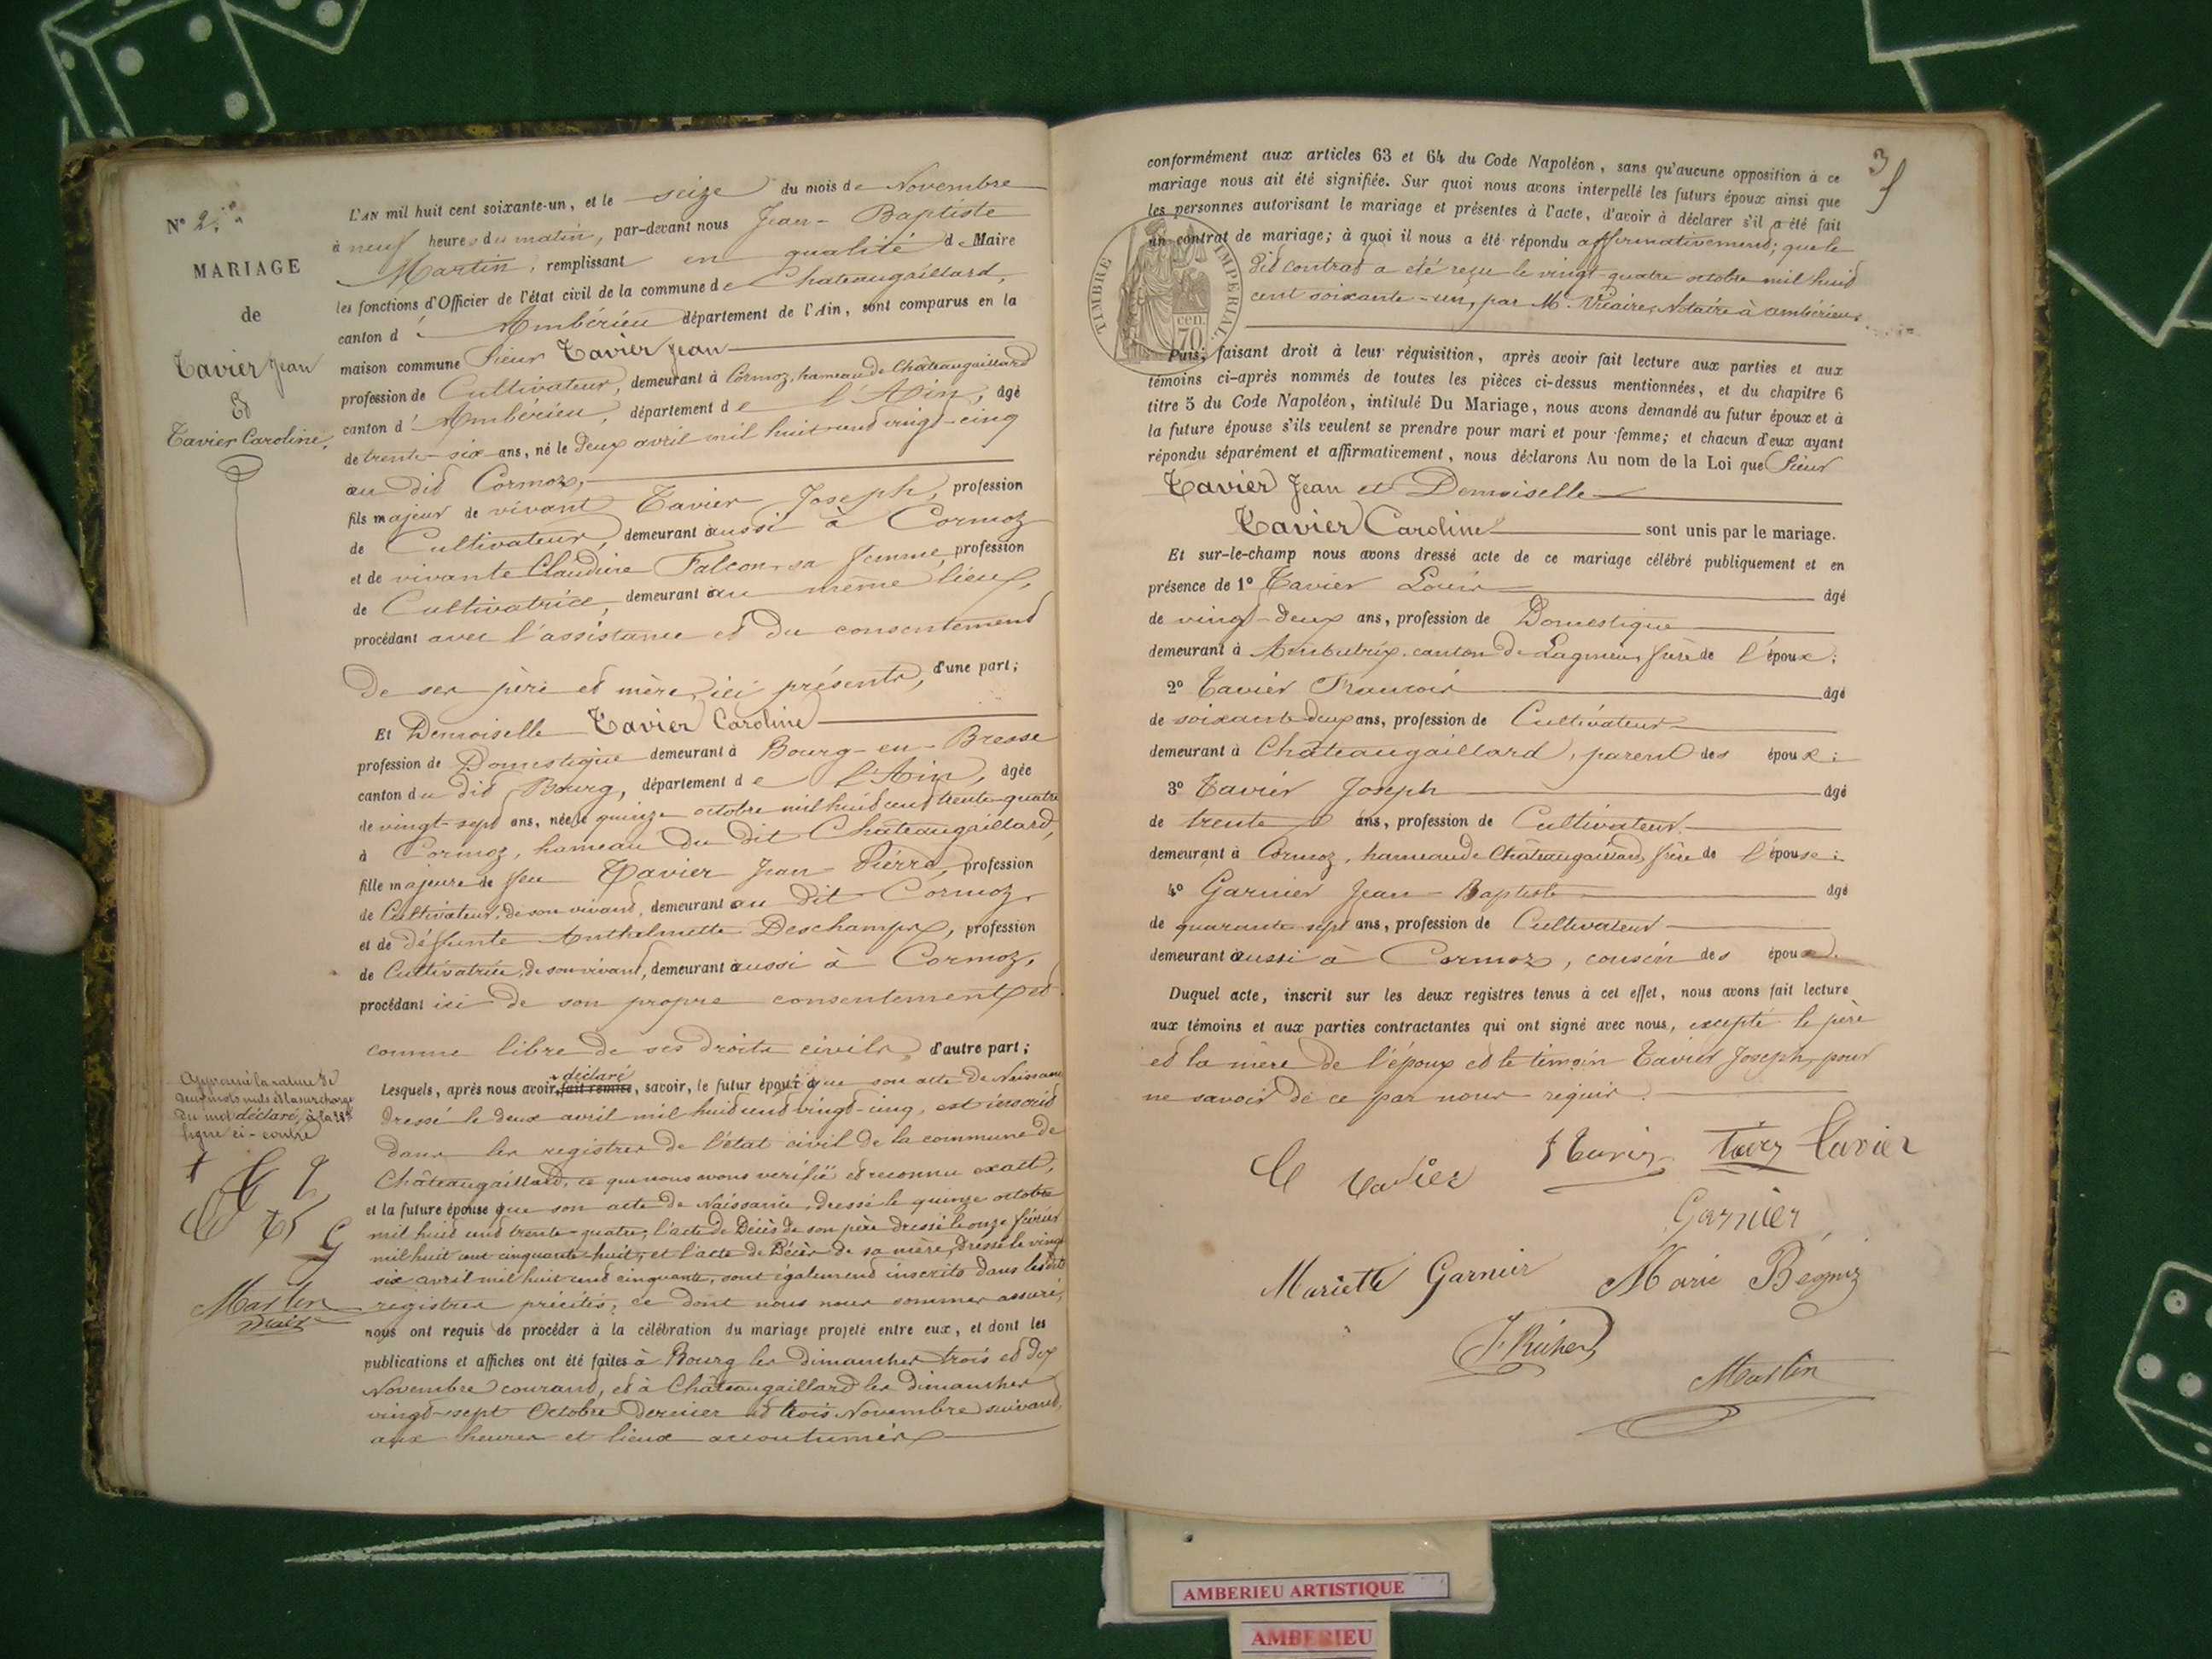 N° 2.
MARIAGE
de
Tavier Jean
Et
Tavier Caroline,
L'AN mil huit cent soixante-un, et le seize du mois de Novembre
à neuf heures du matin, par-devant nous Jean-Baptiste
Martin, remplissant en qualité de Maire
les fonctions d'Officier de l'état civil de la commune de Chateaugaillard,
canton d'Ambérieu département de l'Ain, sont comparus en la
maison commune Sieur Tavier Jean
profession de Cultivateur, demeurant à Cormoz, hameau de Châteaugaillard
canton d'Ambérieu, département de l'Ain, âgé
de trente-six ans, né le deux avril mil huit cent vingt-cinq
au dit Cormoz,
fils majeur de vivant Tavier Joseph, profession
de Cultivateur, demeurant aussi à Cormoz
et de vivante Claudine Falcon sa femme, profession
de Cultivatrice, demeurant au même lieu,
procédant avec l'assistance et du consentement
de ses père et mère, ici présents, d'une part;
Et Demoiselle Tavier Caroline
profession de Domestique demeurant à Bourg-en-Bresse
canton du dit Bourg, département de l'Ain, âgée
de vingt-sept ans, née le quinze octobre mil huit cent trente-quatre
à Cormoz, hameau du dit Châteaugaillard,
fille majeure de feu Tavier Jean-Pierre, profession
de Cultivateur, de son vivant, demeurant au dit Cormoz
et de défunte Anthelmette Deschamps, profession
de Cultivatrice, de son vivant, demeurant aussi à Cormoz,
procédant ici de son propre consentement et
comme libre de ses droits civils, d'autre part;
déclaré
Lesquels, après nous avoir fait remise, savoir, le futur époux que son acte de Naissance
dressé le deux avril mil huit cent vingt-cinq, est inscrit
dans les registres de l'état civil de la commune de
Châteaugaillard, ce que nous avons vérifié et reconnu exact,
et la future épouse que son acte de Naissance, dressé le quinze octobre
mil huit cent trente-quatre, l'acte de Décès de son père dressé le onze février
mil huit cent cinquante-huit, et l'acte de Décès de sa mère, dressé le vingt
six avril mil huit cent cinquante, sont également inscrits dans les dits
registres précités, ce dont nous nous sommes assuré,
nous ont requis de procéder à la célébration du mariage projeté entre eux, et dont les
publications et affiches ont été faites à Bourg les dimanches trois et dix
Novembre courant, et à Châteaugaillard les dimanches
vingt-sept Octobre dernier et trois Novembre suivant,
aux heures et lieux accoutumés
Approuvé la rature de
deux mots nuls et la surcharge
du mot déclaré, à la 28e
ligne ci-contre
Martin
maire
3
conformément aux articles 63 et 64 du Code Napoléon, sans qu'aucune opposition à ce
mariage nous ait été signifiée. Sur quoi nous avons interpellé les futurs époux ainsi que
les personnes autorisant le mariage et présentes à l'acte, d'avoir à déclarer s'il a été fait
un contrat de mariage; à quoi il nous a été répondu affirmativement; que le
dit contrat a été reçu le vingt-quatre octobre mil huit
cent soixante-un, par Me. Vicaire, Notaire à Ambérieu.
TIMBRE IMPERIAL
70 cen.
Puis, faisant droit à leur réquisition, après avoir fait lecture aux parties et aux
témoins ci-après nommés de toutes les pièces ci-dessus mentionnées, et du chapitre 6
titre 5 du Code Napoléon, intitulé Du Mariage, nous avons demandé au futur époux et à
la future épouse s'ils veulent se prendre pour mari et pour femme; et chacun d'eux ayant
répondu séparément et affirmativement, nous déclarons Au nom de la Loi que Sieur
Tavier Jean et Demoiselle
Tavier Caroline sont unis par le mariage.
Et sur-le-champ nous avons dressé acte de ce mariage célébré publiquement et en
présence de 1° Tavier Louis âgé
de vingt-deux ans, profession de Domestique
demeurant à Ambutrix, canton de Lagnieu, frère de l'époux;
2° Tavier François âgé
de soixante-deux ans, profession de Cultivateur
demeurant à Châteaugaillard, parent des époux;
3° Tavier Joseph âgé
de trente ans, profession de Cultivateur
demeurant à Cormoz, hameau de Châteaugaillard, frère de l'épouse;
4° Garnier Jean-Baptiste âgé
de quarante-sept ans, profession de Cultivateur
demeurant aussi à Cormoz, cousin des époux.
Duquel acte, inscrit sur les deux registres tenus à cet effet, nous avons fait lecture
aux témoins et aux parties contractantes qui ont signé avec nous, excepté le père
et la mère de l'époux et le témoin Tavier Joseph, pour
ne savoir de ce par nous requis.
C tavier Tavier
Garnier
Mariette Garnier Marie
Martin
AMBERIEU ARTISTIQUE
AMBERIEU